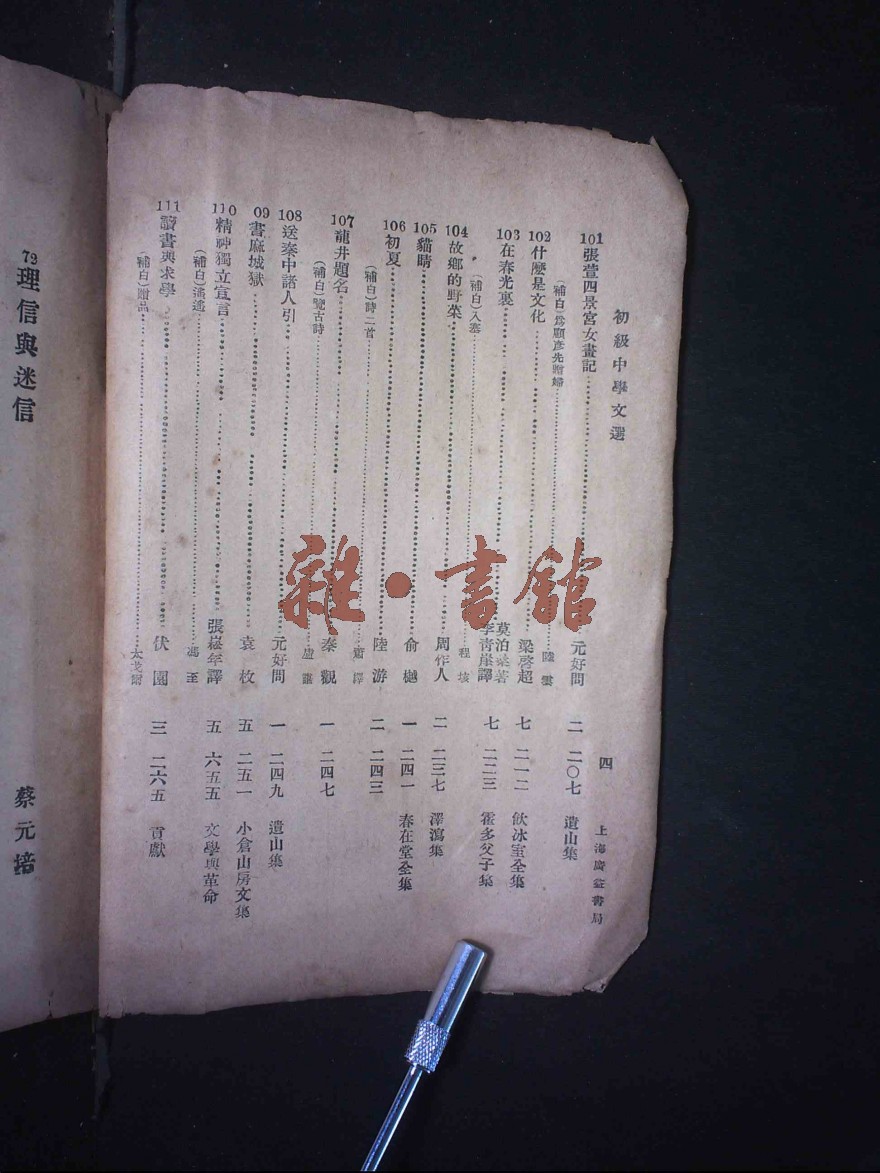 初級中學文選 四 上海廣益書局
101 張萱四景宮女畫記 元好問 二 二〇七 遺山集
(補白)爲顧彥先贈婦 陸雲
102 什麼是文化 梁啓超 七 二一二 飲冰室全集
103 在春光裏 莫泊桑著 李青崖譯 七 二二三 霍多父子集
(補白)入塞 程垓
104 故鄉的野菜 周作人 二 二三七 澤瀉集
105 貓睛 俞樾 一 二四一 春在堂全集
106 初夏 陸游 二 二四三
(補白)詩二首
107 龍井題名 秦觀 一 二四七
(補白)覽古詩
108 送秦中諸人引 元好問 一 二四九 遺山集
09 書麻城獄 袁枚 五 二五一 小倉山房文集
110 精神獨立宣言 張崧年譯 五 六五五 文學與革命
(補白)遙遙 馮至
111 讀書與求學 伏園 三 二六五 貢獻
(補白)贈品 太戈爾
72 理信與迷信 蔡元培
雜·書館